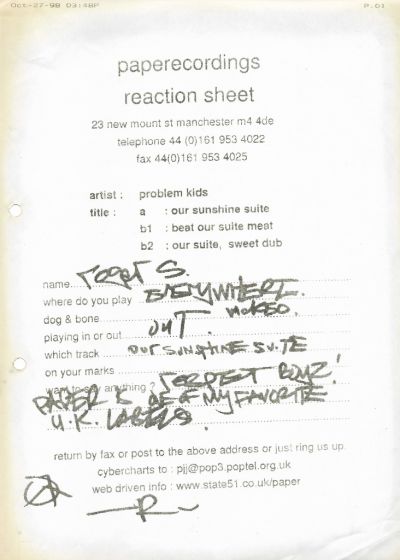 Oct-27-98 03:48P P.01
paperecordings
reaction sheet
23 new mount st manchester m4 4de
telephone 44 (0)161 953 4022
fax 44(0)161 953 4025
artist : problem kids
title : a : our sunshine suite
b1 : beat our suite meat
b2 : our suite, sweet dub
name roger S.
where do you play EVERYWHERE.
dog & bone
playing in or out OUT.
which track OUR SUNSHINE SUITE
on your marks
want to say anything ?
PAPER IS ONE OF MY FAVORITE
U.K. LABELS.
return by fax or post to the above address or just ring us up.
cybercharts to : pjj@pop3.poptel.org.uk
web driven info : www.state51.co.uk/paper
R